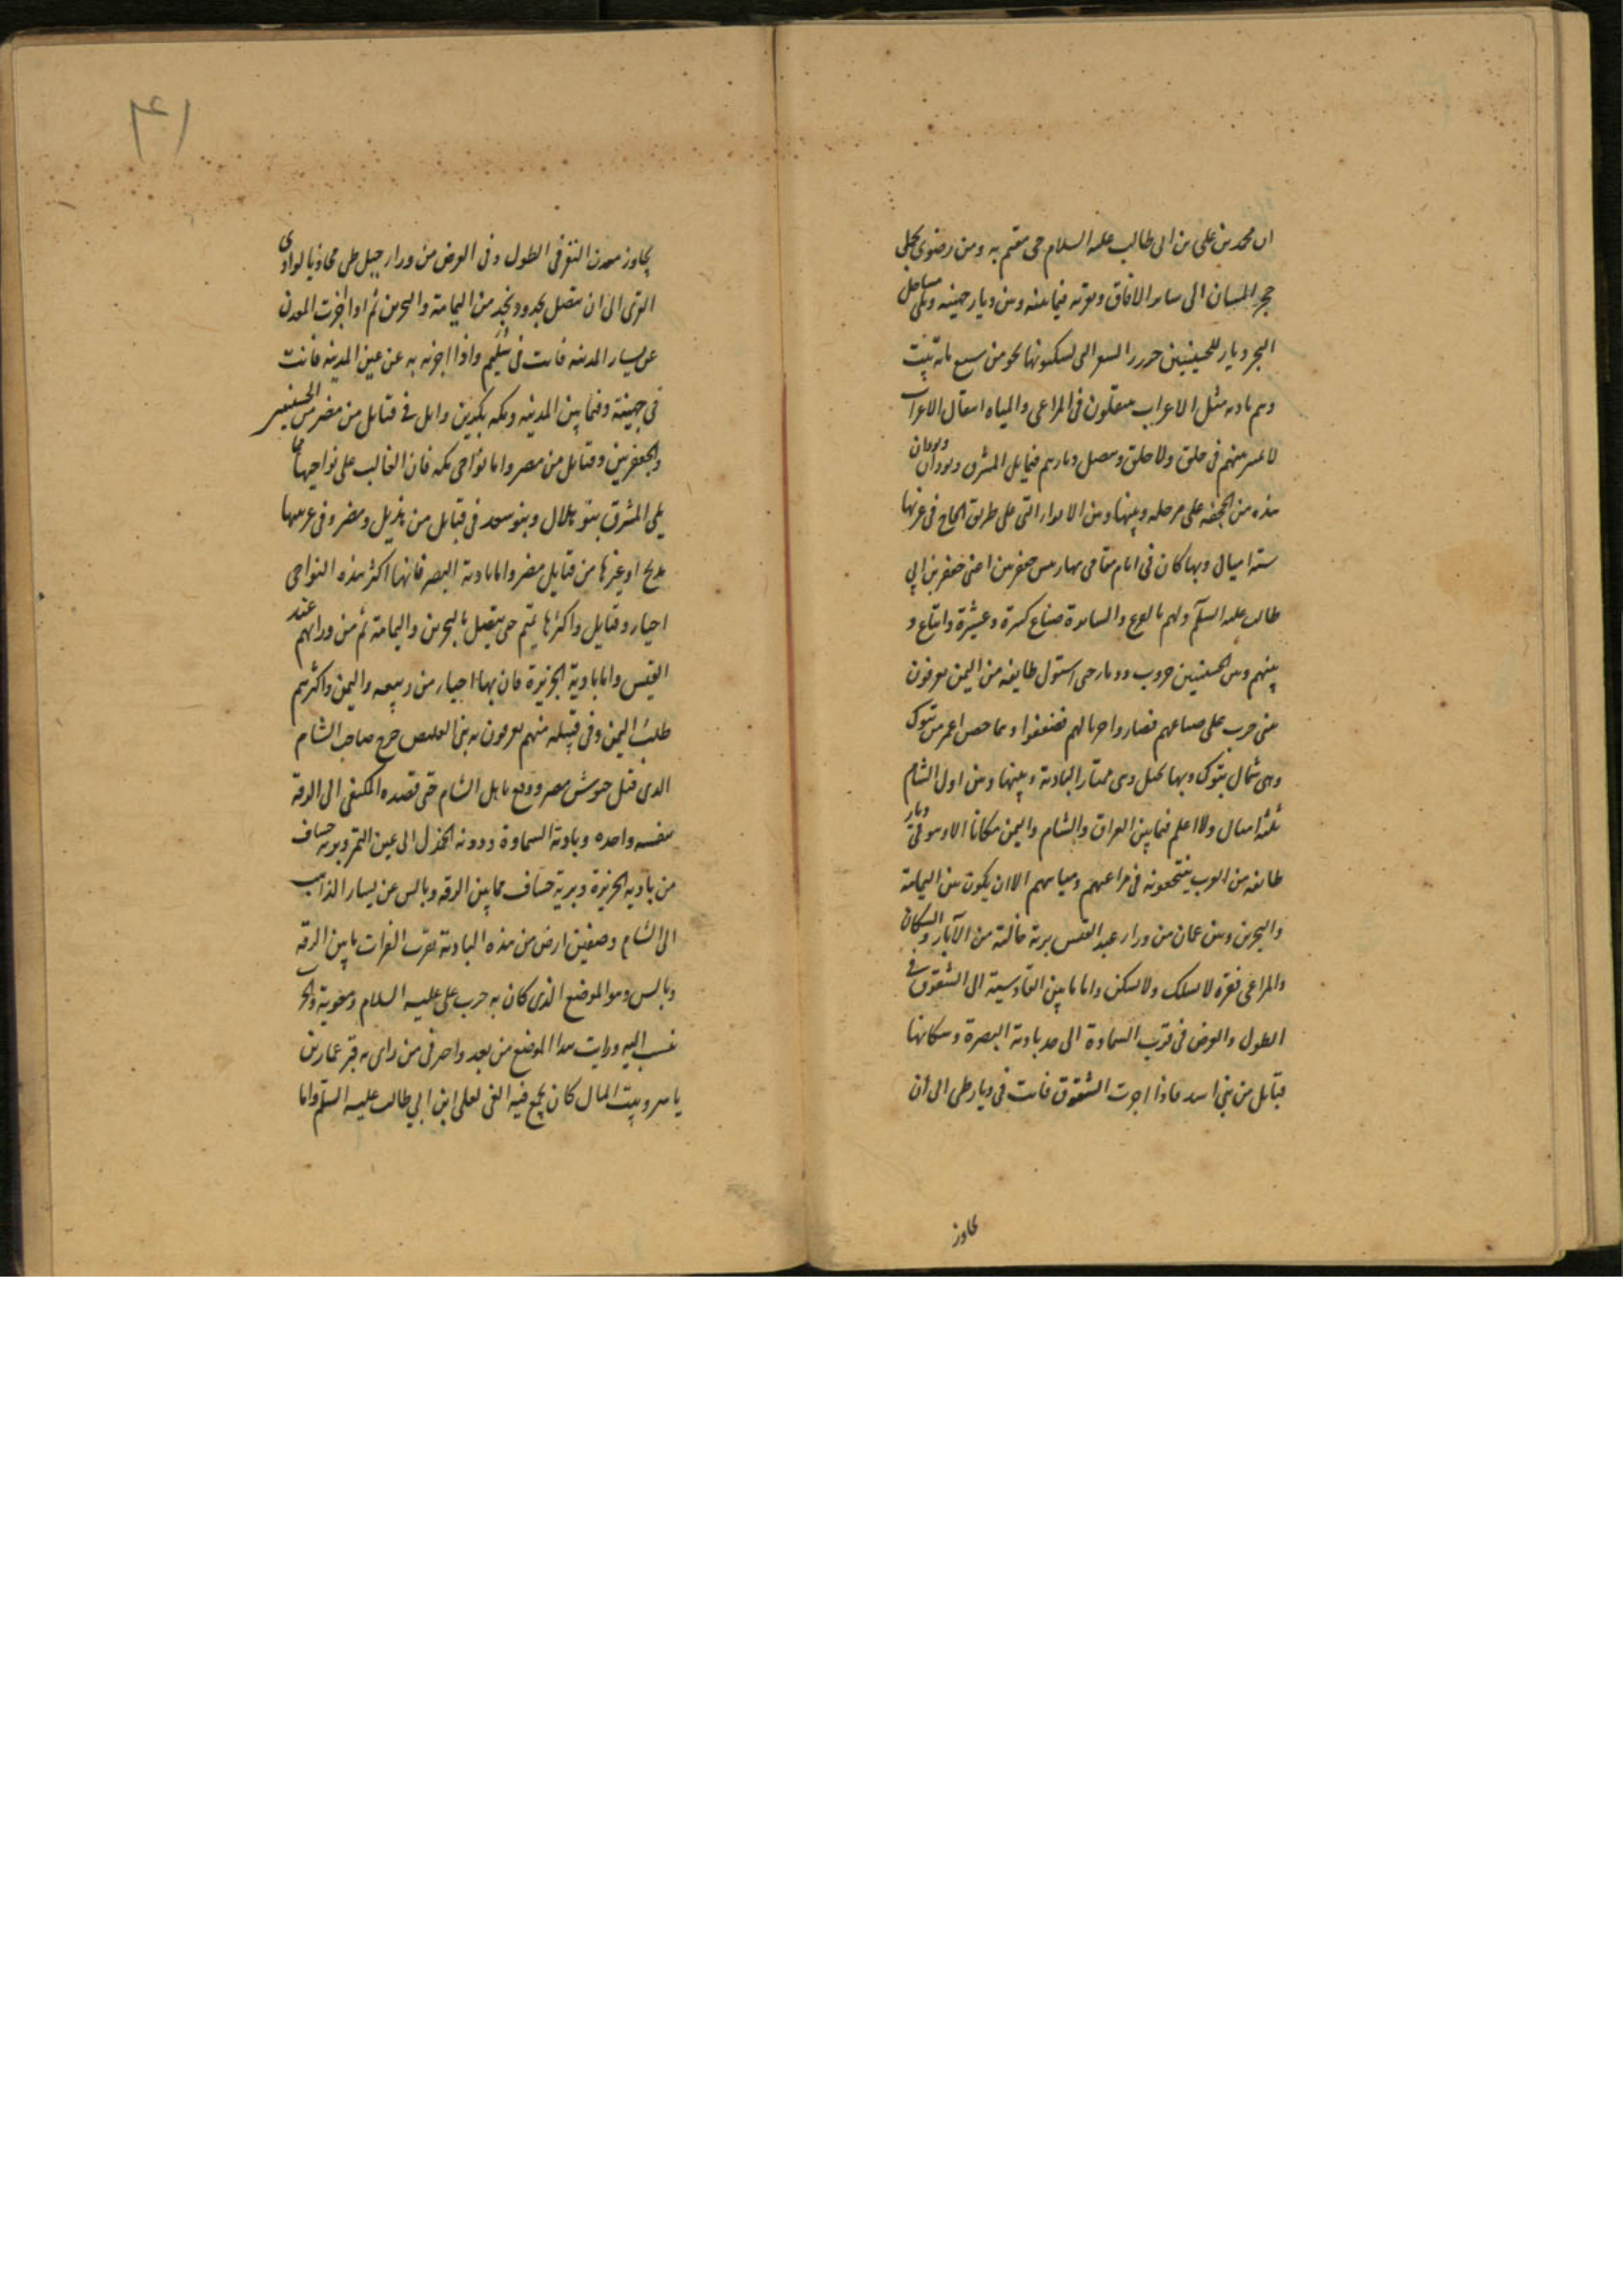 ان محمد بن علی بن ابی طالب علیه السلام حی مقیم به ومن رضوی یحمل
حجر المسان الی سایر الافاق وبقربه فیما بینه وبین دیار جهینه وبلی وساحل
البحر دیار للحسینیین حزرت بیوت الشعر التی یسکنونها نحو من سبع مائة بیت
وهم بادیه مثل الاعراب ینتقلون فی المراعی والمیاه انتقال الاعراب
لا تمیز بینهم فی خلق ولا خلق وتتصل دیارهم فیما یلی المشرق بودان وودان
هذه من الجحفه علی مرحله وبینها وبین الابواء التی علی طریق الحاج فی غربیها
سته امیال وبها کان فی ایام مقامی بها رئیس جعفریین اعنی جعفر بن ابی
طالب علیه السلام ولهم بالفرع والسایرة ضیاع کثیرة وعشیرة واتباع و
بینهم وبین الحسنیین حروب ودماء حتی استولی طایفه من الیمن یعرفون
ببنی حرب علی ضیاعهم فصاروا حربا لهم فضعفوا وتیما حصن اعمر من تبوک
وهی شمال تبوک وبها نخیل وهی ممتار البادیة وبینها وبین اول الشام
ثلثة امیال ولا اعلم فیما بین العراق والشام والیمن مکانا الا وهو فی دیار
طایفه من العرب ینتجعونه فی مراعیهم ومیاههم الا ان یکون بین الیمامة
والبحرین وبین عمان من وراء عبد القیس بریة خالیة من الآبار والسکان
والمراعی قفرة لا تسلک ولا تسکن واما ما بین القادسیة الی الشقوق فی
الطول والعرض فی قرب السماوة الی حد بادیة البصرة وسکانها
قبایل من بنی اسد فاذا اجزت الشقوق فانت فی دیار طی الی ان
تجاوز
۴۱
یجاوز معدن النقرة فی الطول وفی العرض من وراء جبل طی محاذیا لوادی
القری الی ان یتصل بحدود نجد من الیمامة والبحرین ثم اذا اجزت المعدن
عن یسار المدینه فانت فی سلیم واذا اجزته به عن یمین المدینه فانت
فی جهینة وفیما بین المدینه ومکه بکر بن وایل فی قبایل من مضر من الحسنیین
والجعفریین وقبایل من مضر واما نواحی مکه فان الغالب علی نواحیها مما
یلی المشرق بنو هلال وبنو سعد فی قبایل من هذیل ومضر وفی غربیها
مدلج او غیرها من قبایل مضر واما بادیة البصره فانها اکثر هذه النواحی
احیاء وقبایل واکثرها تمیم حتی یتصل بالبحرین والیمامة ثم من ورائهم عبد
القیس واما بادیة الجزیرة فان بها احیاء من ربیعه والیمن واکثرهم
کلب الیمن وفی قبیله منهم یعرفون ببنی العلیص خرج صاحب الشام
الذی قتل جیوش مصر ووقع باهل الشام حتی قصده المکتفی الی الرقة
بنفسه واخذه وبادیة السماوة ودومة الجندل الی عین التمر وبریة خساف
من بادیه الجزیرة وبریة خساف مما بین الرقه وبالس عن یسار الذاهب
الی الشام وصفین ارض من هذه البادیة بقرب الفرات ما بین الرقه
وبالس وهو الموضع الذی کان به حرب علی علیه السلام ومعویة والحر
تنسب الیه ورایت هذا الموضع من بعد واخبرنی من رای به قبر عمار بن
یاسر وبیت المال کان یجمع فیه الفئ لعلی ابن ابی طالب علیه السلم واما